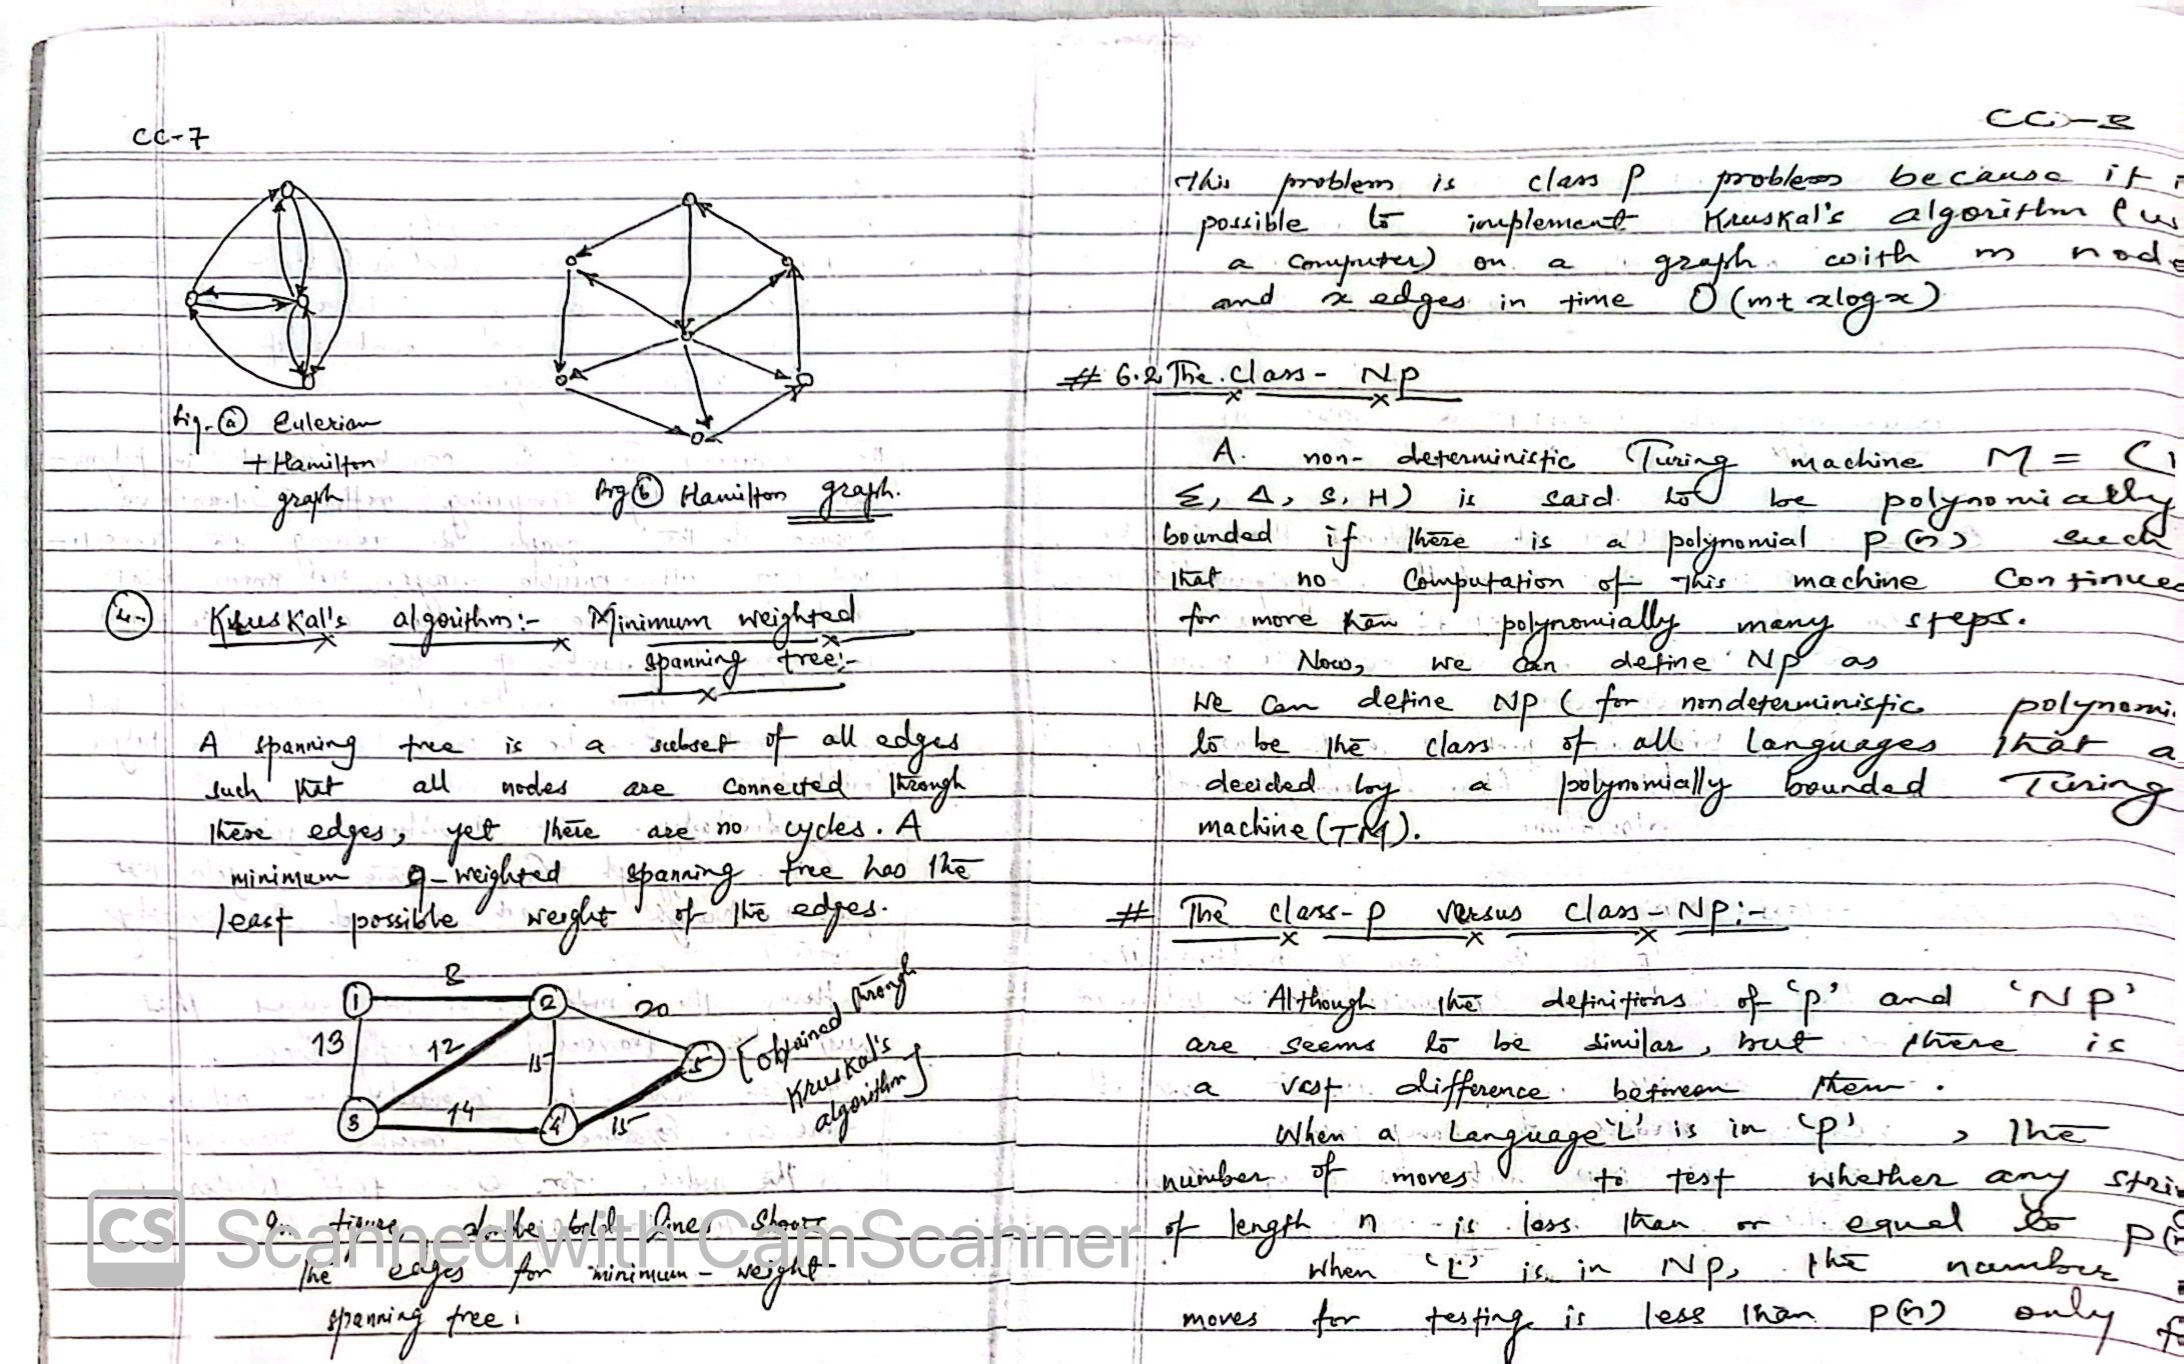 CC-7
Fig-ⓐ Eulerian
+ Hamilton
graph
Fig ⓑ Hamilton graph.
④- Kruskal's algorithm:- Minimum weighted
spanning tree:-
A spanning tree is a subset of all edges
such that all nodes are connected through
these edges, yet there are no cycles. A
minimum -weighted spanning tree has the
least possible weight of the edges.
8
1 2
20
13 12 15
5 [obtained through
Kruskal's
algorithm]
3 14 4 15
In figure above bold lines shows
the edges for minimum-weight
spanning tree.
This problem is class P problem because it
possible to implement Kruskal's algorithm (us
a computer) on a graph with m node
and x edges in time O(m+xlogx)
# 6.2 The class- NP
A. non-deterministic Turing machine M = (
Σ, Δ, S, H) is said to be polynomially
bounded if there is a polynomial P(n) such
that no Computation of this machine Continues
for more than polynomially many steps.
Now, we can define NP as
We can define NP (for nondeterministic polynomi
to be the class of all languages that a
decided by a polynomially bounded Turing
machine (TM).
# The class-P versus class-NP:-
Although the definitions of 'P' and 'NP'
are seems to be similar, but there is
a vast difference between them.
When a Language 'L' is in 'P' , the
number of moves to test whether any stri
of length n is less than or equal to P(n
When 'L' is in NP, the number
moves for testing is less than P(n) only f
Scanned with CamScanner
CS